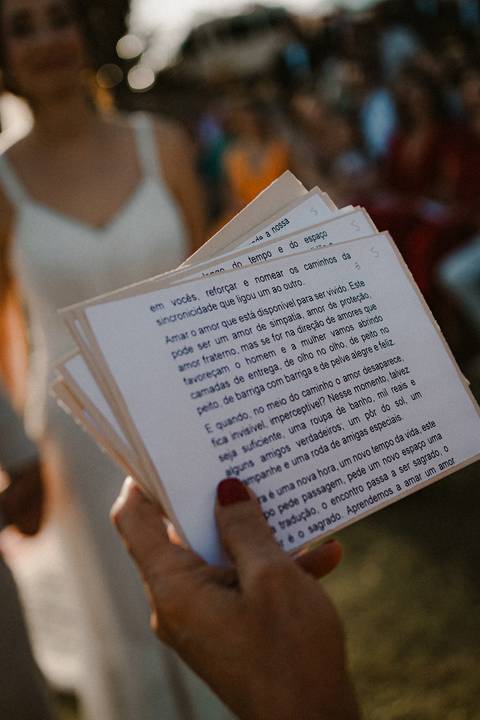 de a nossa
5
longo do tempo e do espaço
5
5
em vocês, reforçar e nomear os caminhos da
sincronicidade que ligou um ao outro.
Amar o amor que está disponível para ser vivido. Este
pode ser um amor de simpatia, amor de proteção,
amor fraterno, mas se for na direção de amores que
favoreçam o homem e a mulher vamos abrindo
camadas de entrega, de olho no olho, de peito no
peito, de barriga com barriga e de pelve alegre e feliz.
E quando, no meio do caminho o amor desaparece,
fica invisível, imperceptível? Nesse momento, talvez
seja suficiente, uma roupa de banho, mil reais e
alguns amigos verdadeiros; um pôr do sol, um
e uma roda de amigas especiais.
é uma nova hora, um novo tempo da vida, este
pede passagem, pede um novo espaço uma
tradução, o encontro passa a ser sagrado, o
é o sagrado. Aprendemos a amar um amor